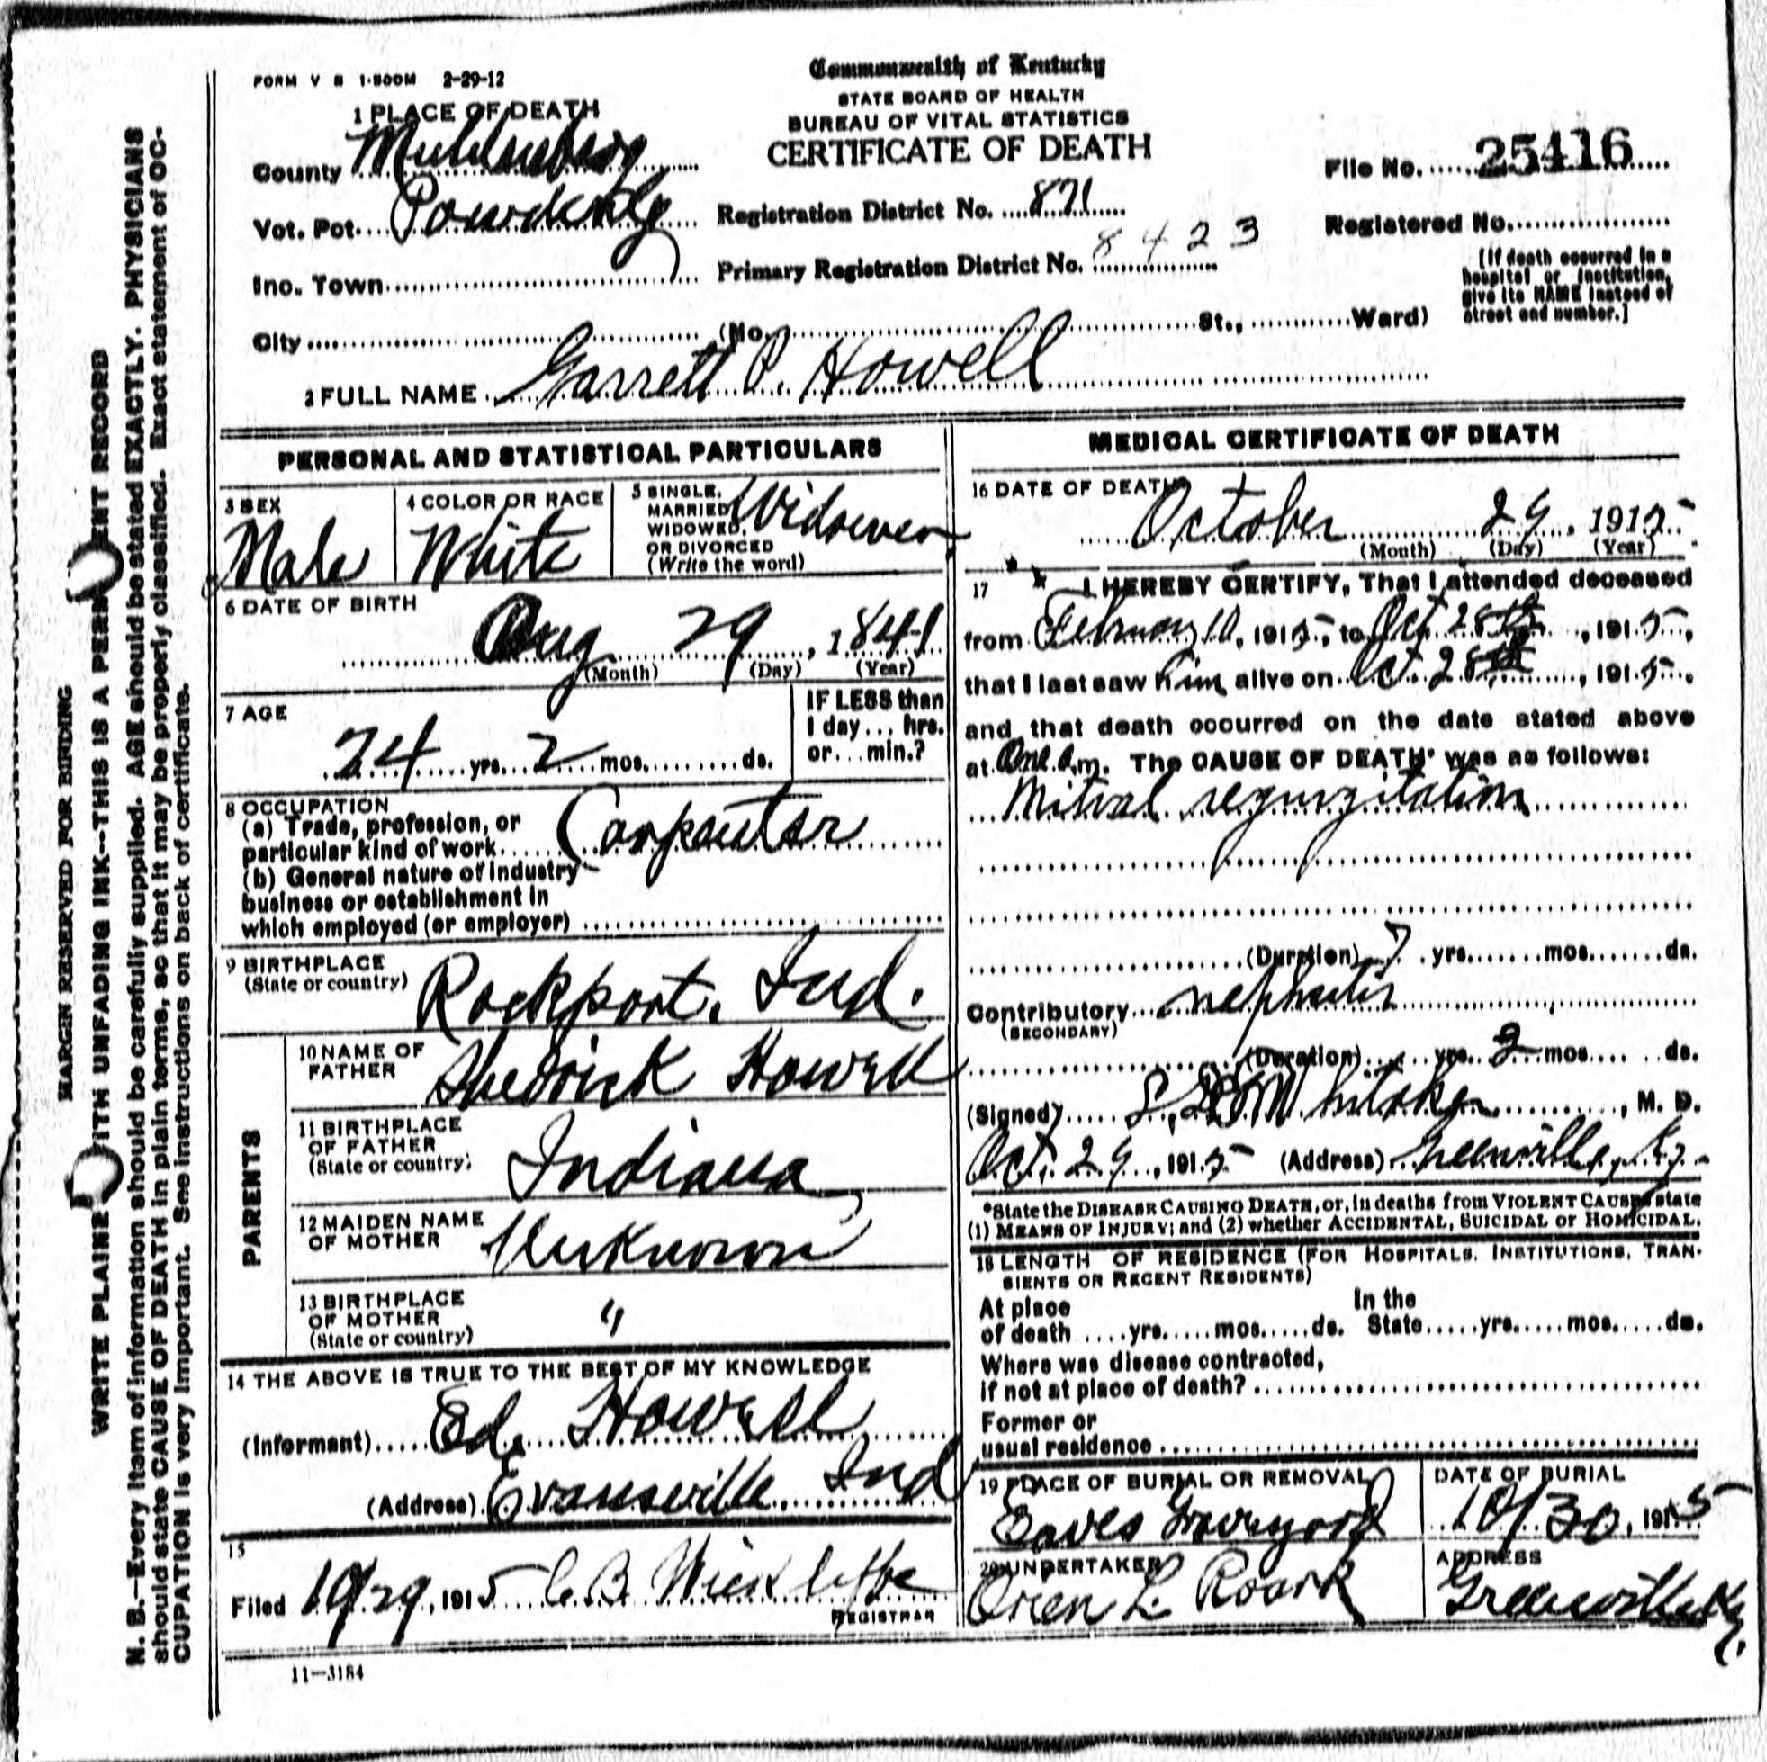 FORM V S 1-500M 2-29-12
Commonwealth of Kentucky
STATE BOARD OF HEALTH
BUREAU OF VITAL STATISTICS
CERTIFICATE OF DEATH
1 PLACE OF DEATH
County Muhlenberg
Vot. Pct. Powderly
Inc. Town
City (No. St., Ward)
Registration District No. 871
Primary Registration District No. 8423
File No. 25416
Registered No.
(If death occurred in a
hospital or institution,
give its NAME instead of
street and number.]
2 FULL NAME Garrett P. Howell
PERSONAL AND STATISTICAL PARTICULARS
3 SEX
Male
4 COLOR OR RACE
White
5 SINGLE,
MARRIED
WIDOWED,
OR DIVORCED
(Write the word)
Widower
6 DATE OF BIRTH
Aug 29, 1841
(Month) (Day) (Year)
7 AGE
74 yrs. 2 mos. ds.
IF LESS than
1 day... hrs.
or... min.?
8 OCCUPATION
(a) Trade, profession, or
particular kind of work Carpenter
(b) General nature of industry
business or establishment in
which employed (or employer)
9 BIRTHPLACE
(State or country)
Rockport, Ind.
PARENTS
10 NAME OF
FATHER
Shedrick Howell
11 BIRTHPLACE
OF FATHER
(State or country)
Indiana
12 MAIDEN NAME
OF MOTHER
Unknown
13 BIRTHPLACE
OF MOTHER
(State or country)
"
14 THE ABOVE IS TRUE TO THE BEST OF MY KNOWLEDGE
(Informant) Ed. Howell
(Address) Evansville Ind
15
Filed 10/29, 1915 C. B. Wickliffe
REGISTRAR
11-3184
MEDICAL CERTIFICATE OF DEATH
16 DATE OF DEATH
October 29, 1915
(Month) (Day) (Year)
17 I HEREBY CERTIFY, That I attended deceased
from February 10, 1915, to Oct 28th, 1915,
that I last saw him alive on Oct. 28th, 1915,
and that death occurred on the date stated above
at One a.m. The CAUSE OF DEATH* was as follows:
Mitral regurgitation
(Duration) 7 yrs. mos. ds.
Contributory nephritis
(SECONDARY)
(Duration) yrs. 2 mos. ds.
(Signed) Whitaker, M. D.
Oct. 29, 1915 (Address) Greenville, Ky.
*State the DISEASE CAUSING DEATH, or, in deaths from VIOLENT CAUSES state
(1) MEANS OF INJURY; and (2) whether ACCIDENTAL, SUICIDAL or HOMICIDAL.
18 LENGTH OF RESIDENCE (FOR HOSPITALS, INSTITUTIONS, TRAN-
SIENTS OR RECENT RESIDENTS)
At place In the
of death yrs. mos. ds. State yrs. mos. ds.
Where was disease contracted,
if not at place of death?
Former or
usual residence
19 PLACE OF BURIAL OR REMOVAL
Eaves Graveyard
DATE OF BURIAL
10/30, 1915
20 UNDERTAKER
Oren L. Roark
ADDRESS
Greenville Ky.
MARGIN RESERVED FOR BINDING
WRITE PLAINLY WITH UNFADING INK--THIS IS A PERMANENT RECORD
N. B.--Every item of information should be carefully supplied. AGE should be stated EXACTLY. PHYSICIANS
should state CAUSE OF DEATH in plain terms, so that it may be properly classified. Exact statement of OC-
CUPATION is very important. See instructions on back of certificate.